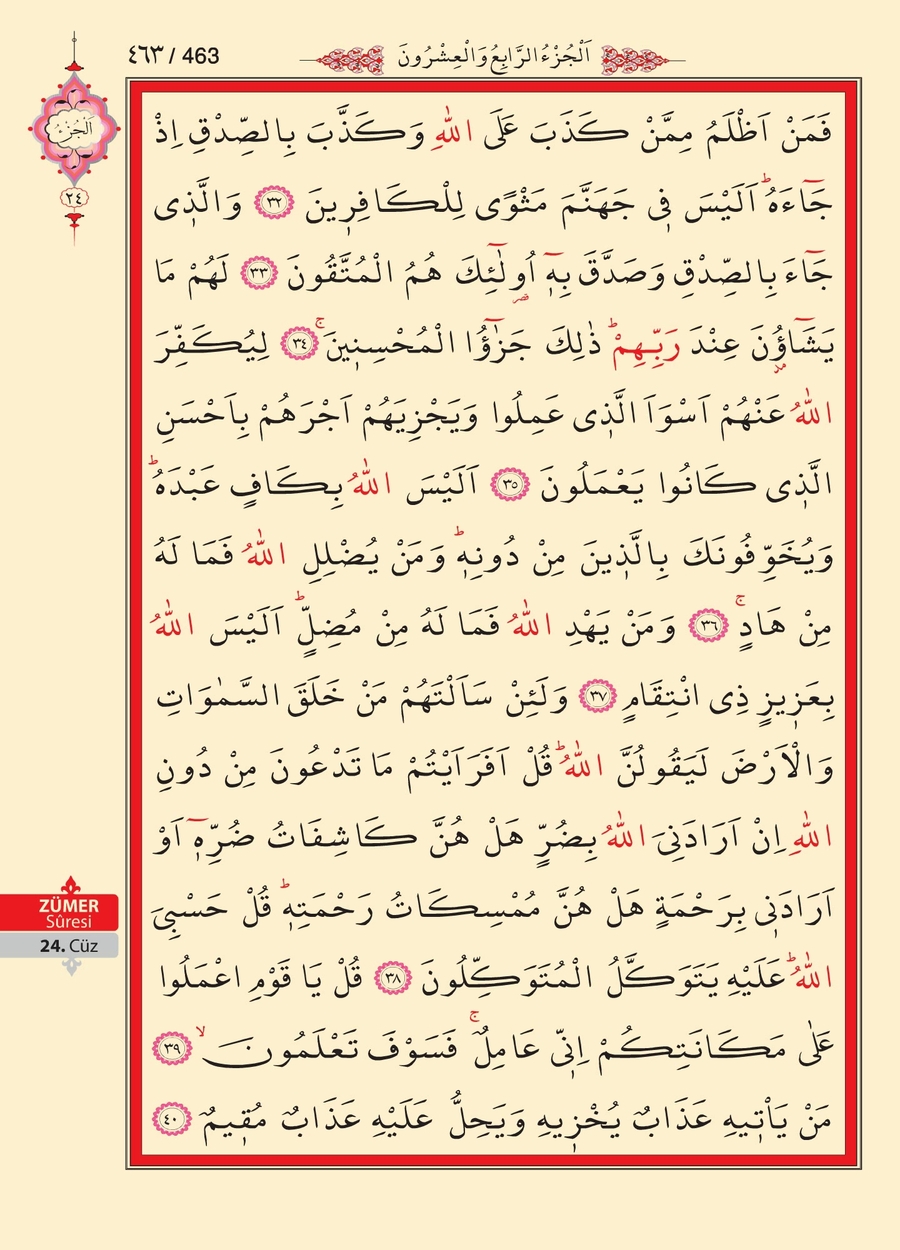 ٤٦٣ / 463
اَلْجُزْءُ الرَّابِعُ وَالْعِشْرُونَ
اَلْجُزْءُ
٢٤
فَمَنْ اَظْلَمُ مِمَّنْ كَذَبَ عَلَى اللّٰهِ وَكَذَّبَ بِالصِّدْقِ اِذْ
جَٓاءَهُۜ اَلَيْسَ ف۪ى جَهَنَّمَ مَثْوًى لِلْكَافِر۪ينَ ﴿٣٢﴾ وَالَّذ۪ى
جَٓاءَ بِالصِّدْقِ وَصَدَّقَ بِه۪ٓ اُو۬لٰٓئِكَ هُمُ الْمُتَّقُونَ ﴿٣٣﴾ لَهُمْ مَا
يَشَٓاؤُ۫نَ عِنْدَ رَبِّهِمْۜ ذٰلِكَ جَزٰٓؤُا الْمُحْسِن۪ينَۚ ﴿٣٤﴾ لِيُكَفِّرَ
اللّٰهُ عَنْهُمْ اَسْوَاَ الَّذ۪ى عَمِلُوا وَيَجْزِيَهُمْ اَجْرَهُمْ بِاَحْسَنِ
الَّذ۪ى كَانُوا يَعْمَلُونَ ﴿٣٥﴾ اَلَيْسَ اللّٰهُ بِكَافٍ عَبْدَهُۜ
وَيُخَوِّفُونَكَ بِالَّذ۪ينَ مِنْ دُونِه۪ۜ وَمَنْ يُضْلِلِ اللّٰهُ فَمَا لَهُ
مِنْ هَادٍۚ ﴿٣٦﴾ وَمَنْ يَهْدِ اللّٰهُ فَمَا لَهُ مِنْ مُضِلٍّۜ اَلَيْسَ اللّٰهُ
بِعَز۪يزٍ ذِى انْتِقَامٍ ﴿٣٧﴾ وَلَئِنْ سَاَلْتَهُمْ مَنْ خَلَقَ السَّمٰوَاتِ
وَالْاَرْضَ لَيَقُولُنَّ اللّٰهُۜ قُلْ اَفَرَاَيْتُمْ مَا تَدْعُونَ مِنْ دُونِ
اللّٰهِ اِنْ اَرَادَنِىَ اللّٰهُ بِضُرٍّ هَلْ هُنَّ كَاشِفَاتُ ضُرِّه۪ٓ اَوْ
اَرَادَن۪ى بِرَحْمَةٍ هَلْ هُنَّ مُمْسِكَاتُ رَحْمَتِه۪ۜ قُلْ حَسْبِىَ
اللّٰهُۜ عَلَيْهِ يَتَوَكَّلُ الْمُتَوَكِّلُونَ ﴿٣٨﴾ قُلْ يَا قَوْمِ اعْمَلُوا
عَلٰى مَكَانَتِكُمْ اِنّ۪ى عَامِلٌۚ فَسَوْفَ تَعْلَمُونَۙ ﴿٣٩﴾
مَنْ يَاْت۪يهِ عَذَابٌ يُخْز۪يهِ وَيَحِلُّ عَلَيْهِ عَذَابٌ مُق۪يمٌ ﴿٤٠﴾
ZÜMER
Sûresi
24. Cüz